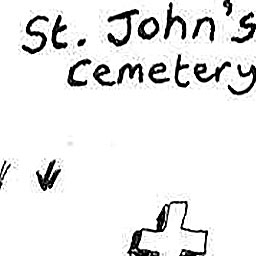 St. John's
Cemetery